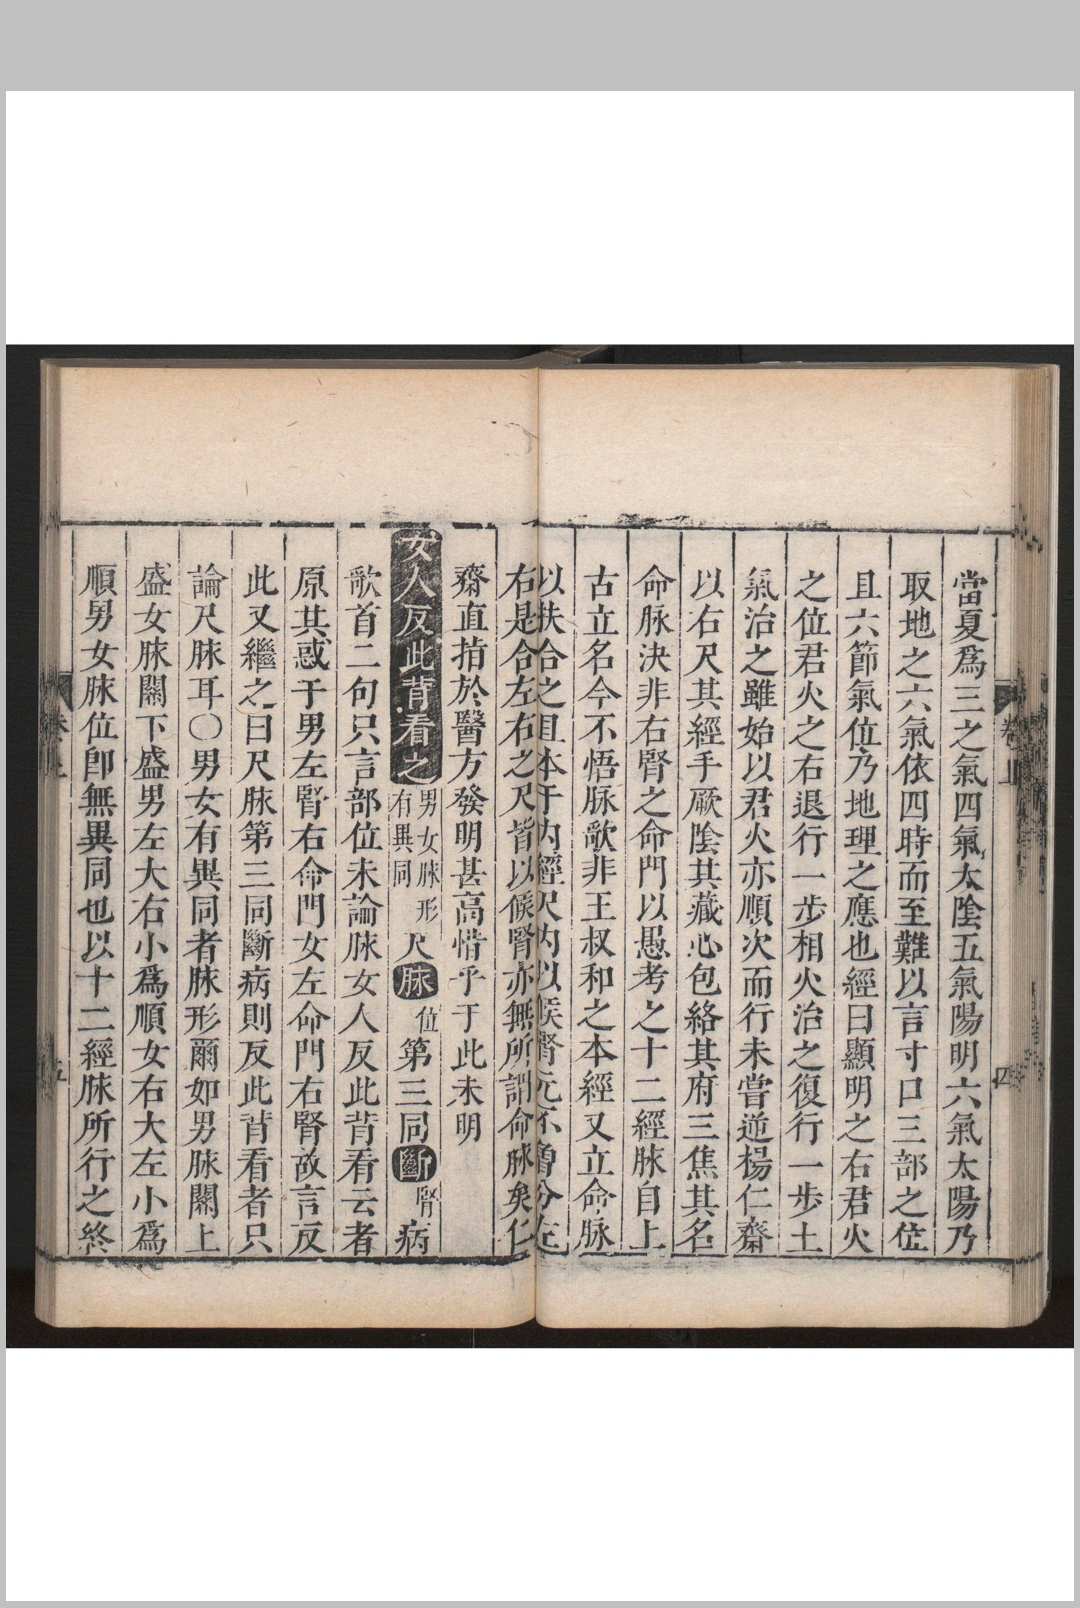 當夏爲三之氣四氣太陰五氣陽明六氣太陽乃
取地之六氣依四時而至難以言寸口三部之位
且六節氣位乃地理之應也經曰顯明之右君火
之位君火之右退行一步相火治之復行一步土
氣治之雖始以君火亦順次而行未嘗逆楊仁齋
以右尺其經手厥陰其藏心包絡其府三焦其名
命脉決非右腎之命門以愚考之十二經脉自上
古立名今不悟脉歌非王叔和之本經又立命脉
以扶合之且本于内經尺内以候腎元不曾分左
右是合左右之尺皆以候腎亦無所謂命脉矣仁
齋直指於醫方發明甚高惜乎于此未明
女人反此背看之 男女脉形有異同 尺脉位第三同斷腎病
歌首二句只言部位未論脉女人反此背看云者
原其惑于男左腎右命門女左命門右腎故言反
此又繼之曰尺脉第三同斷病則反此背看者只
論尺脉耳〇男女有異同者脉形爾如男脉關上
盛女脉關下盛男左大右小爲順女右大左小爲
順男女脉位卽無異同也以十二經脉所行之終
卷上
四